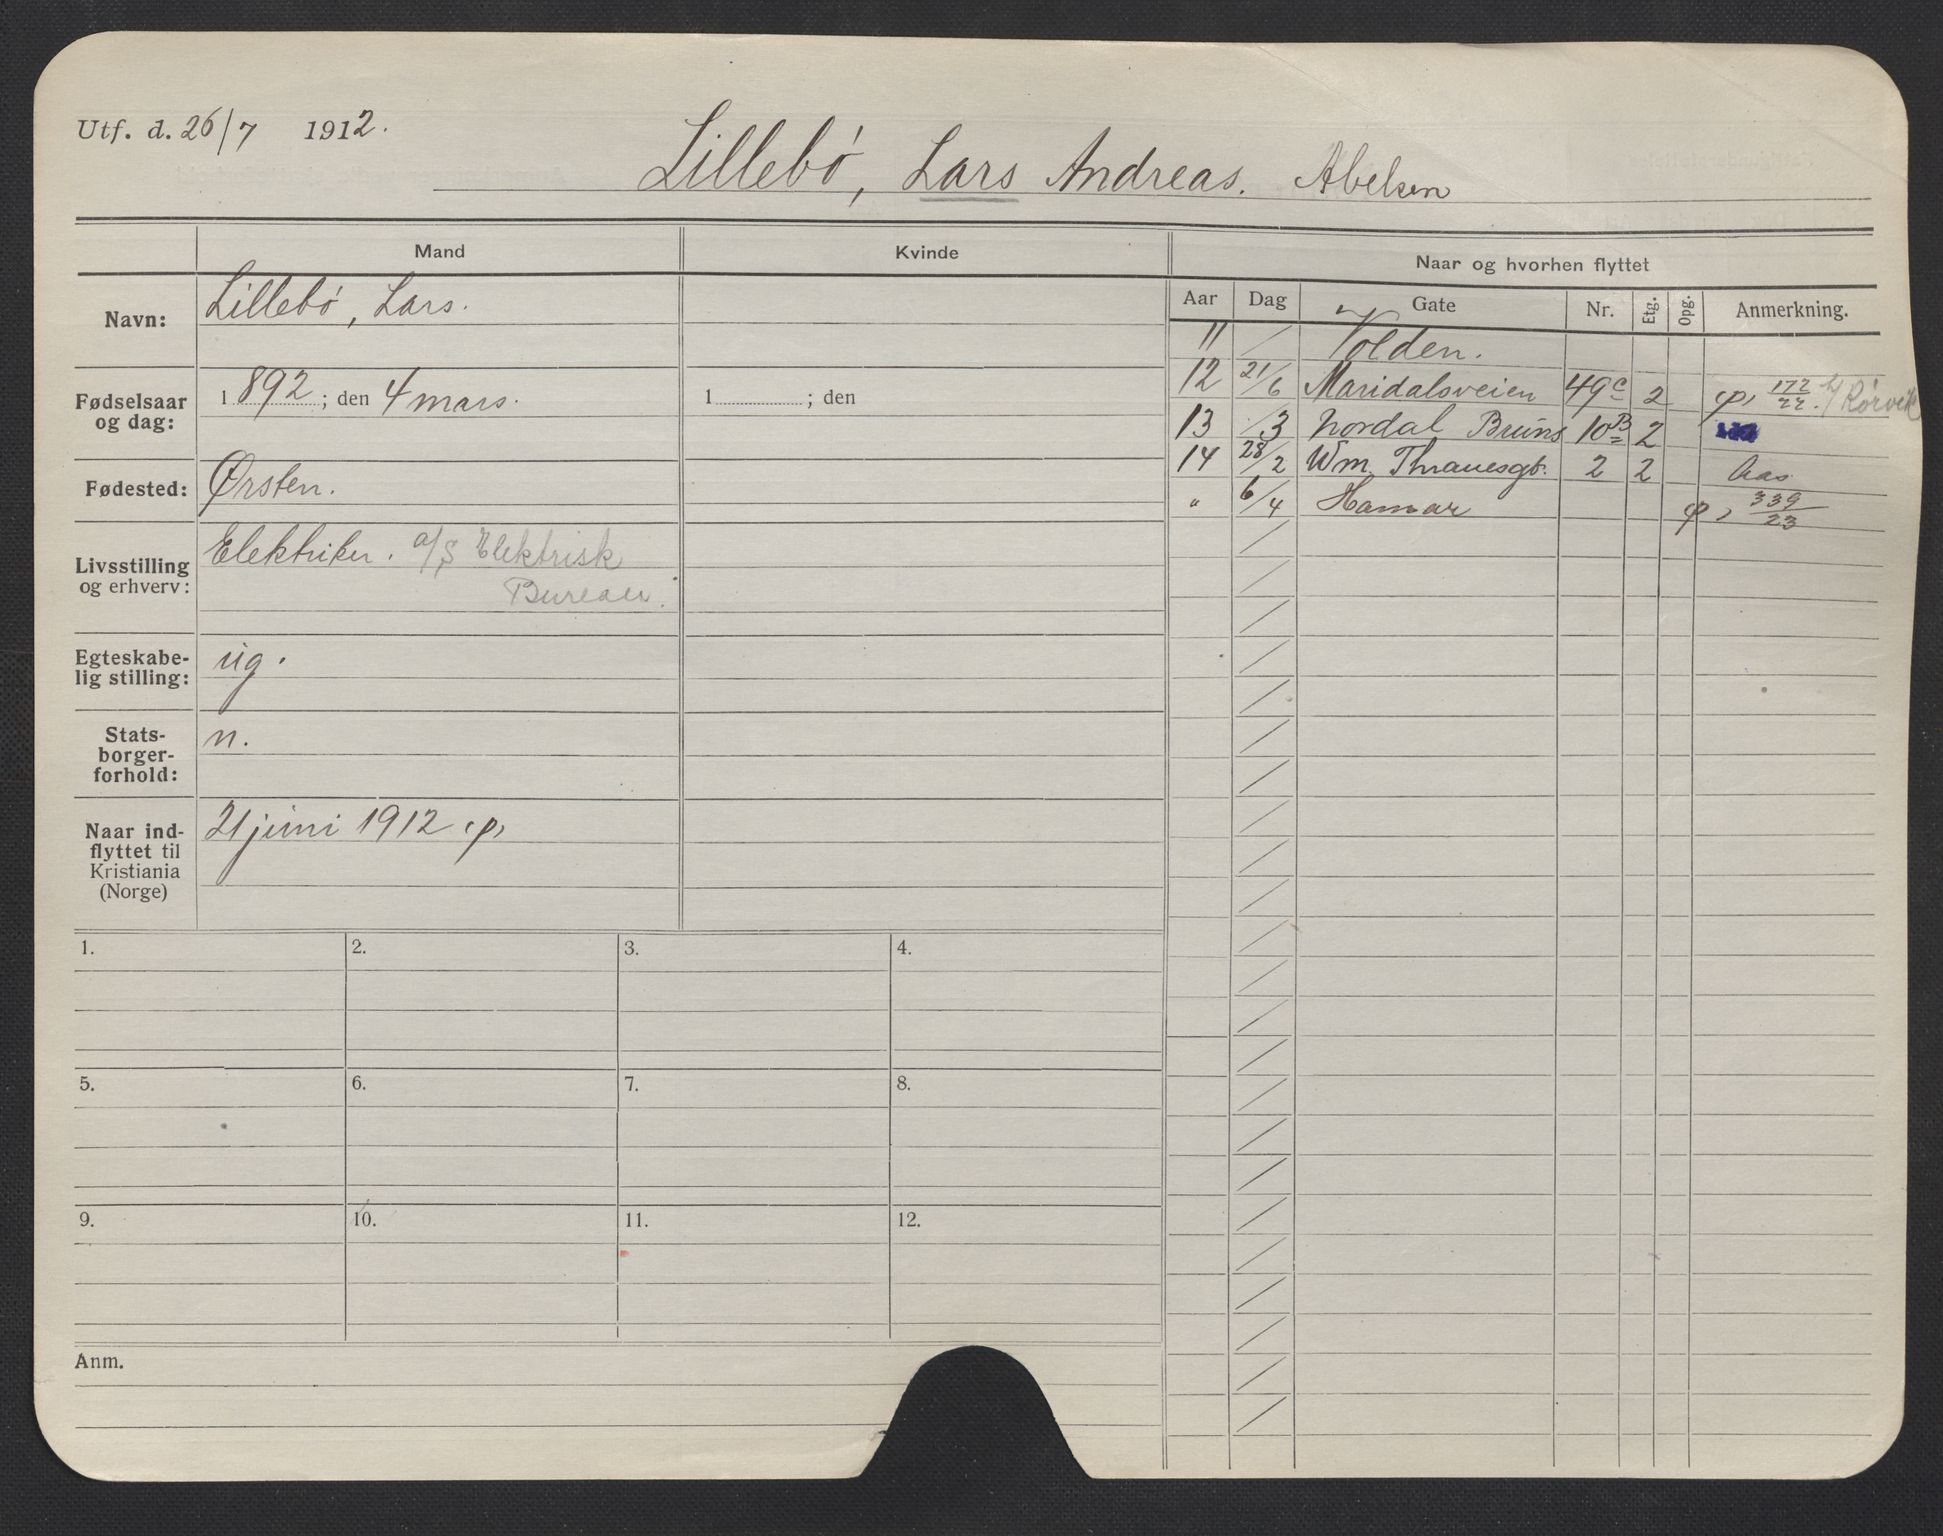 Utf. d. 26/7 1912.
Lillebø, Lars Andreas. Abelsen
Mand Kvinde Naar og hvorhen flyttet
Aar Dag Gate Nr. Etg. Opg. Anmerkning.
Navn: Lillebø, Lars.
Fødselsaar og dag: 1892; den 4 mars. 1 ; den
Fødested: Ørsten.
Livsstilling og erhverv: Elektriker. a/s Elektrisk
Bureau.
Egteskabe-
lig stilling: ug.
Stats-
borger-
forhold: n.
Naar ind-
flyttet til
Kristiania
(Norge) 21 juni 1912
11 / Volden.
12 21/6 Maridalsveien 49c 2 172/22 Rørvik
13 /3 Nordal Bruns 10B 2
14 28/2 Wm. Thranesgt. 2 2 Aas
" 6/4 Hamar 339/23
1. 2. 3. 4.
5. 6. 7. 8.
9. 10. 11. 12.
Anm.